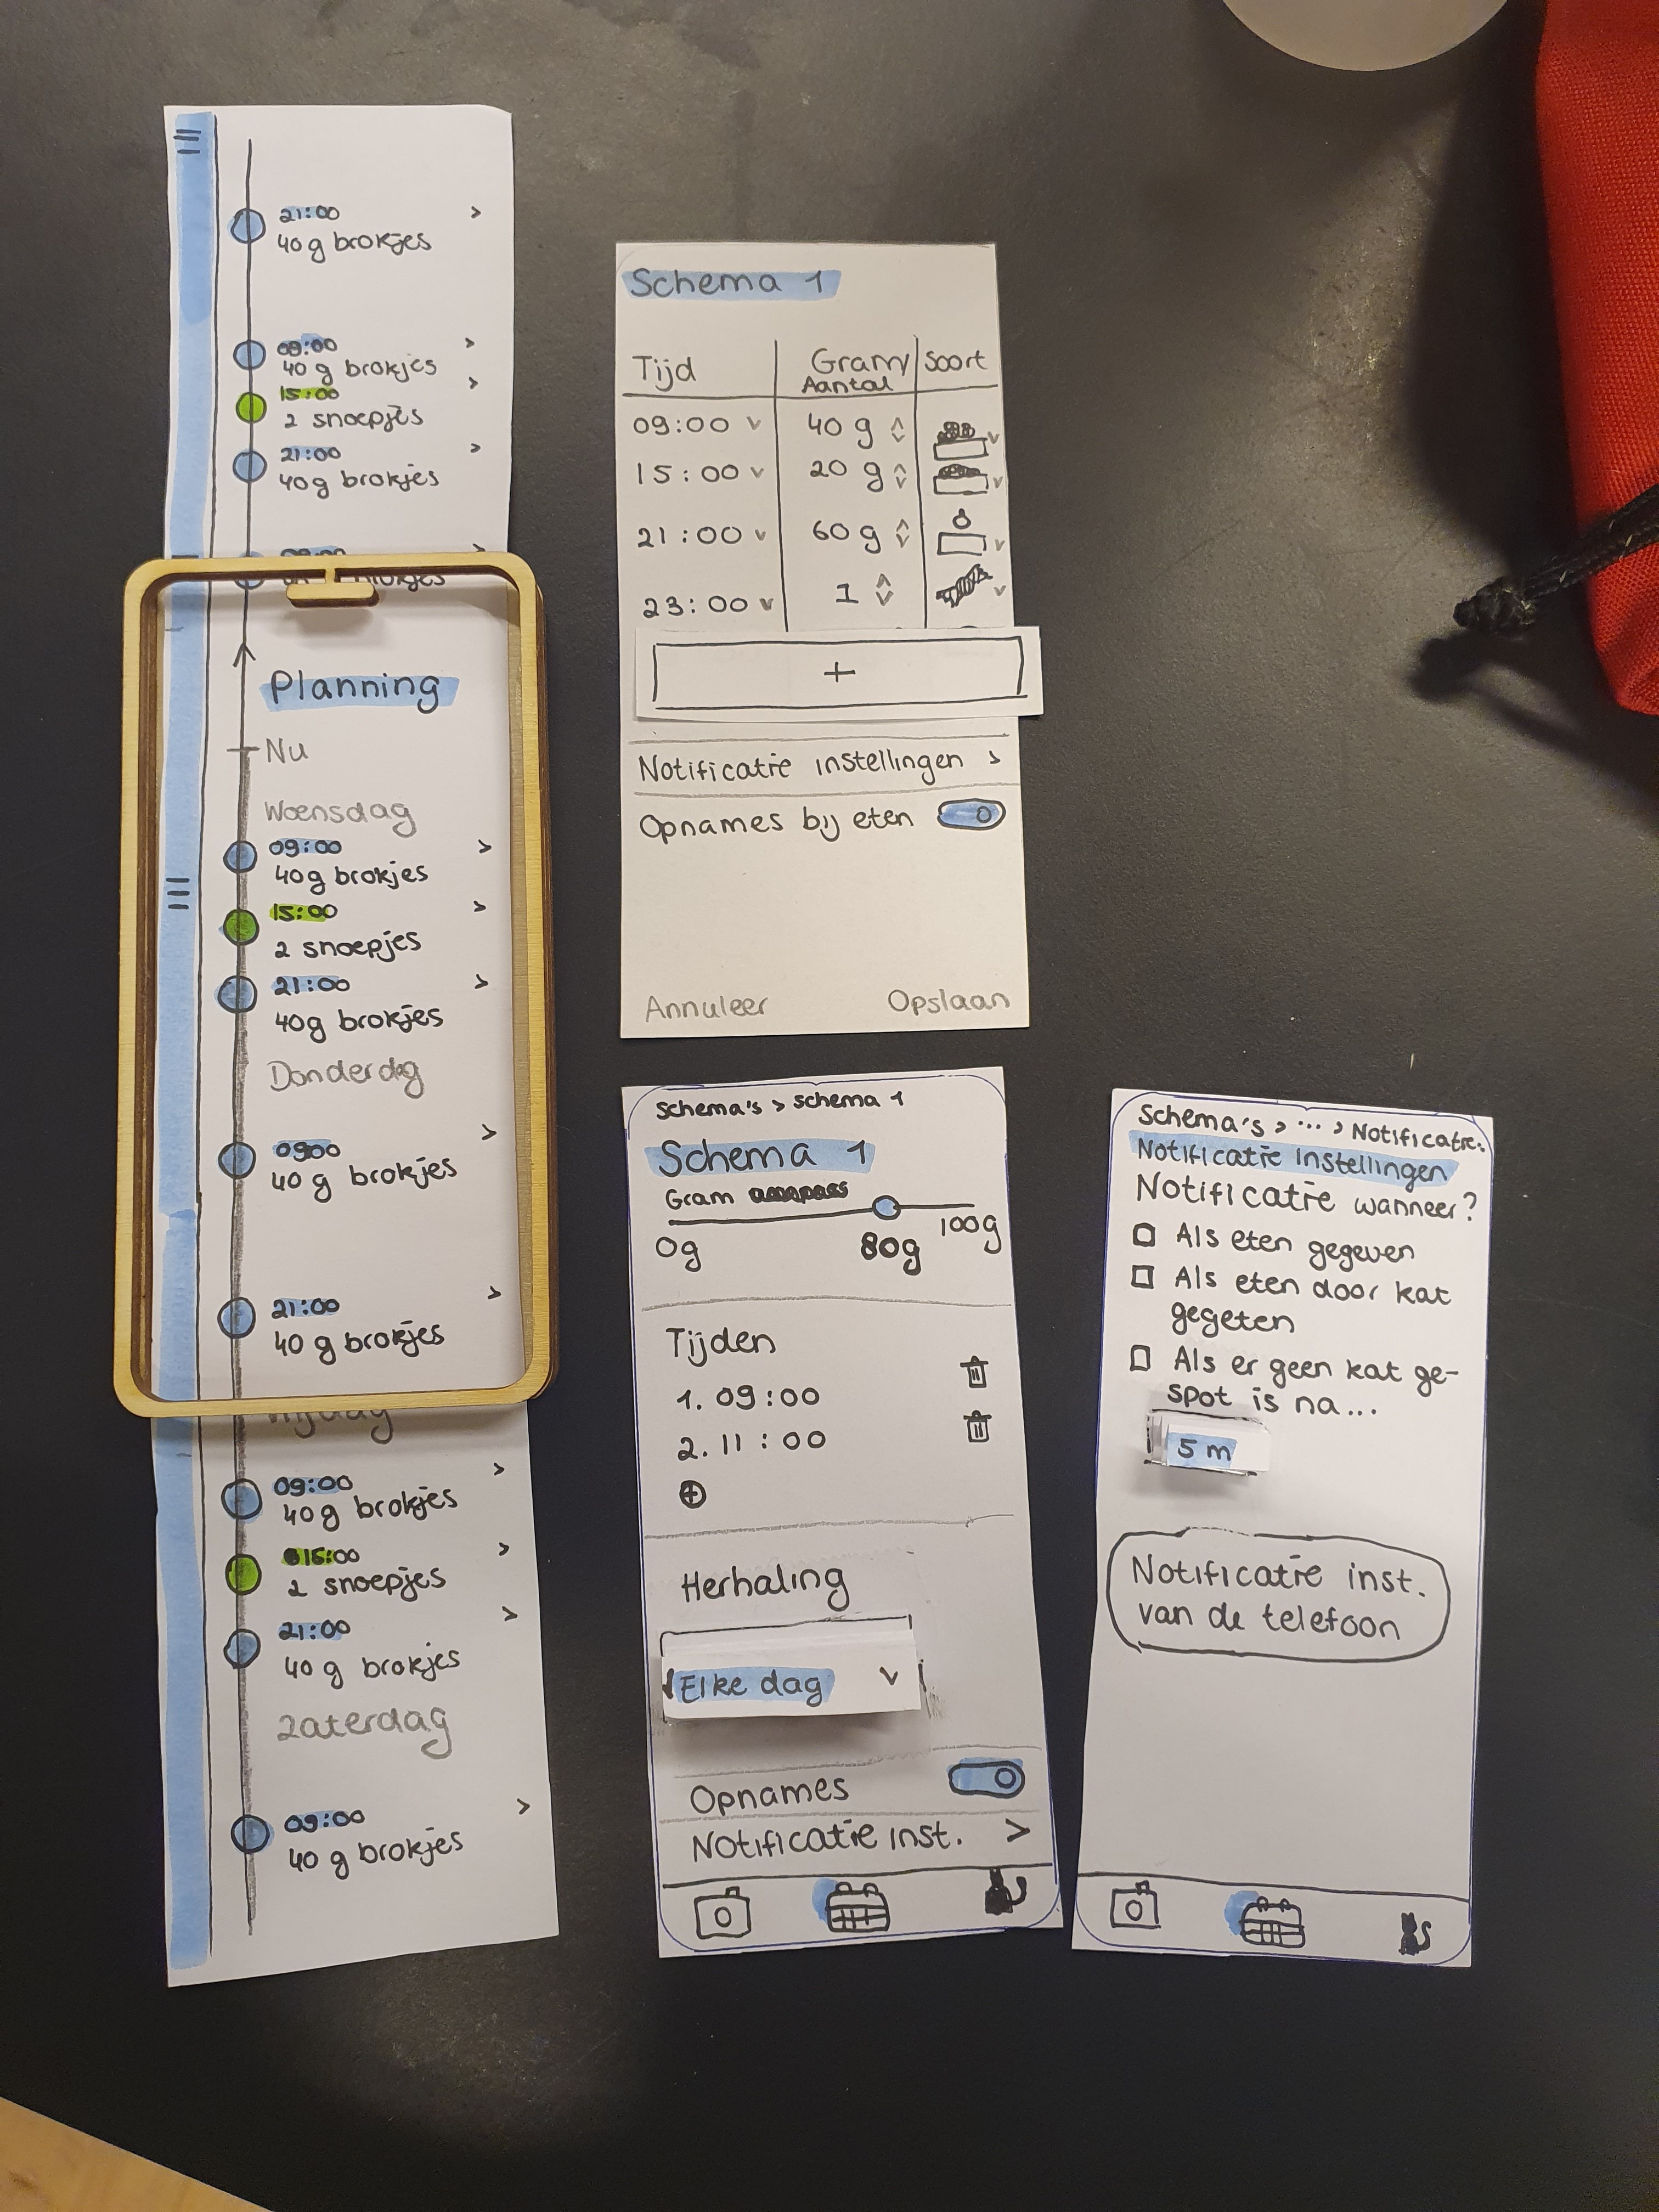 21:00
40 g brokjes
09:00
40 g brokjes
15:00
2 snoepjes
21:00
40g brokjes
09:00
brokjes
Planning
Nu
Woensdag
09:00
40g brokjes
15:00
2 snoepjes
21:00
40g brokjes
Donderdag
0900
40 g brokjes
21:00
40 g brokjes
Vrijdag
09:00
40 g brokjes
15:00
2 snoepjes
21:00
40 g brokjes
Zaterdag
09:00
40 g brokjes
Schema 1
Tijd Gram/ Soort
Aantal
09:00 40 g
15:00 20 g
21:00 60 g
23:00 1
+
Notificatie instellingen >
Opnames bij eten
Annuleer Opslaan
Schema's > Schema 1
Schema 1
Gram
0g 80g 100g
Tijden
1. 09:00
2. 11:00
Herhaling
Elke dag
Opnames
Notificatie inst. >
Schema's > ... > Notificatie.
Notificatie Instellingen
Notificatie wanneer?
Als eten gegeven
Als eten door kat
gegeten
Als er geen kat ge-
spot is na...
5 m
Notificatie inst.
van de telefoon